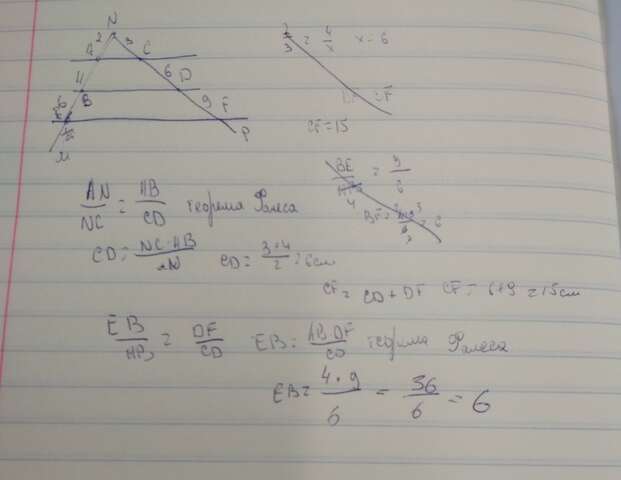 N
2 3
A C
4 6 D
B 9 F
6
E
P
M
2/3 = 4/x x = 6
CF = 15
BE/AB = 9/6
4
AN/NC = AB/CD теорема Фалеса
CD = NC·AB/AN CD = 3·4/2 = 6см
CF = CD + DF CF = 6+9 = 15см
EB/AB = DF/CD EB = AB·DF/CD теорема Фалеса
EB = 4·9/6 = 36/6 = 6